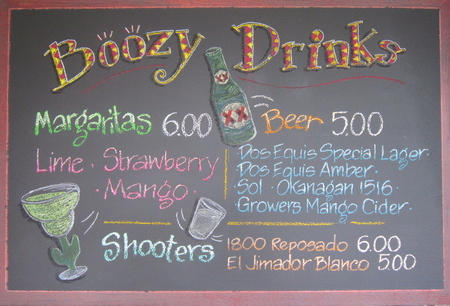 Boozy Drinks
Margaritas 6.00
Lime · Strawberry
· Mango ·
XX
Beer 5.00
Dos Equis Special Lager ·
Dos Equis Amber ·
Sol · Okanagan 1516 ·
Growers Mango Cider ·
Shooters
1800 Reposado 6.00
El Jimador Blanco 5.00